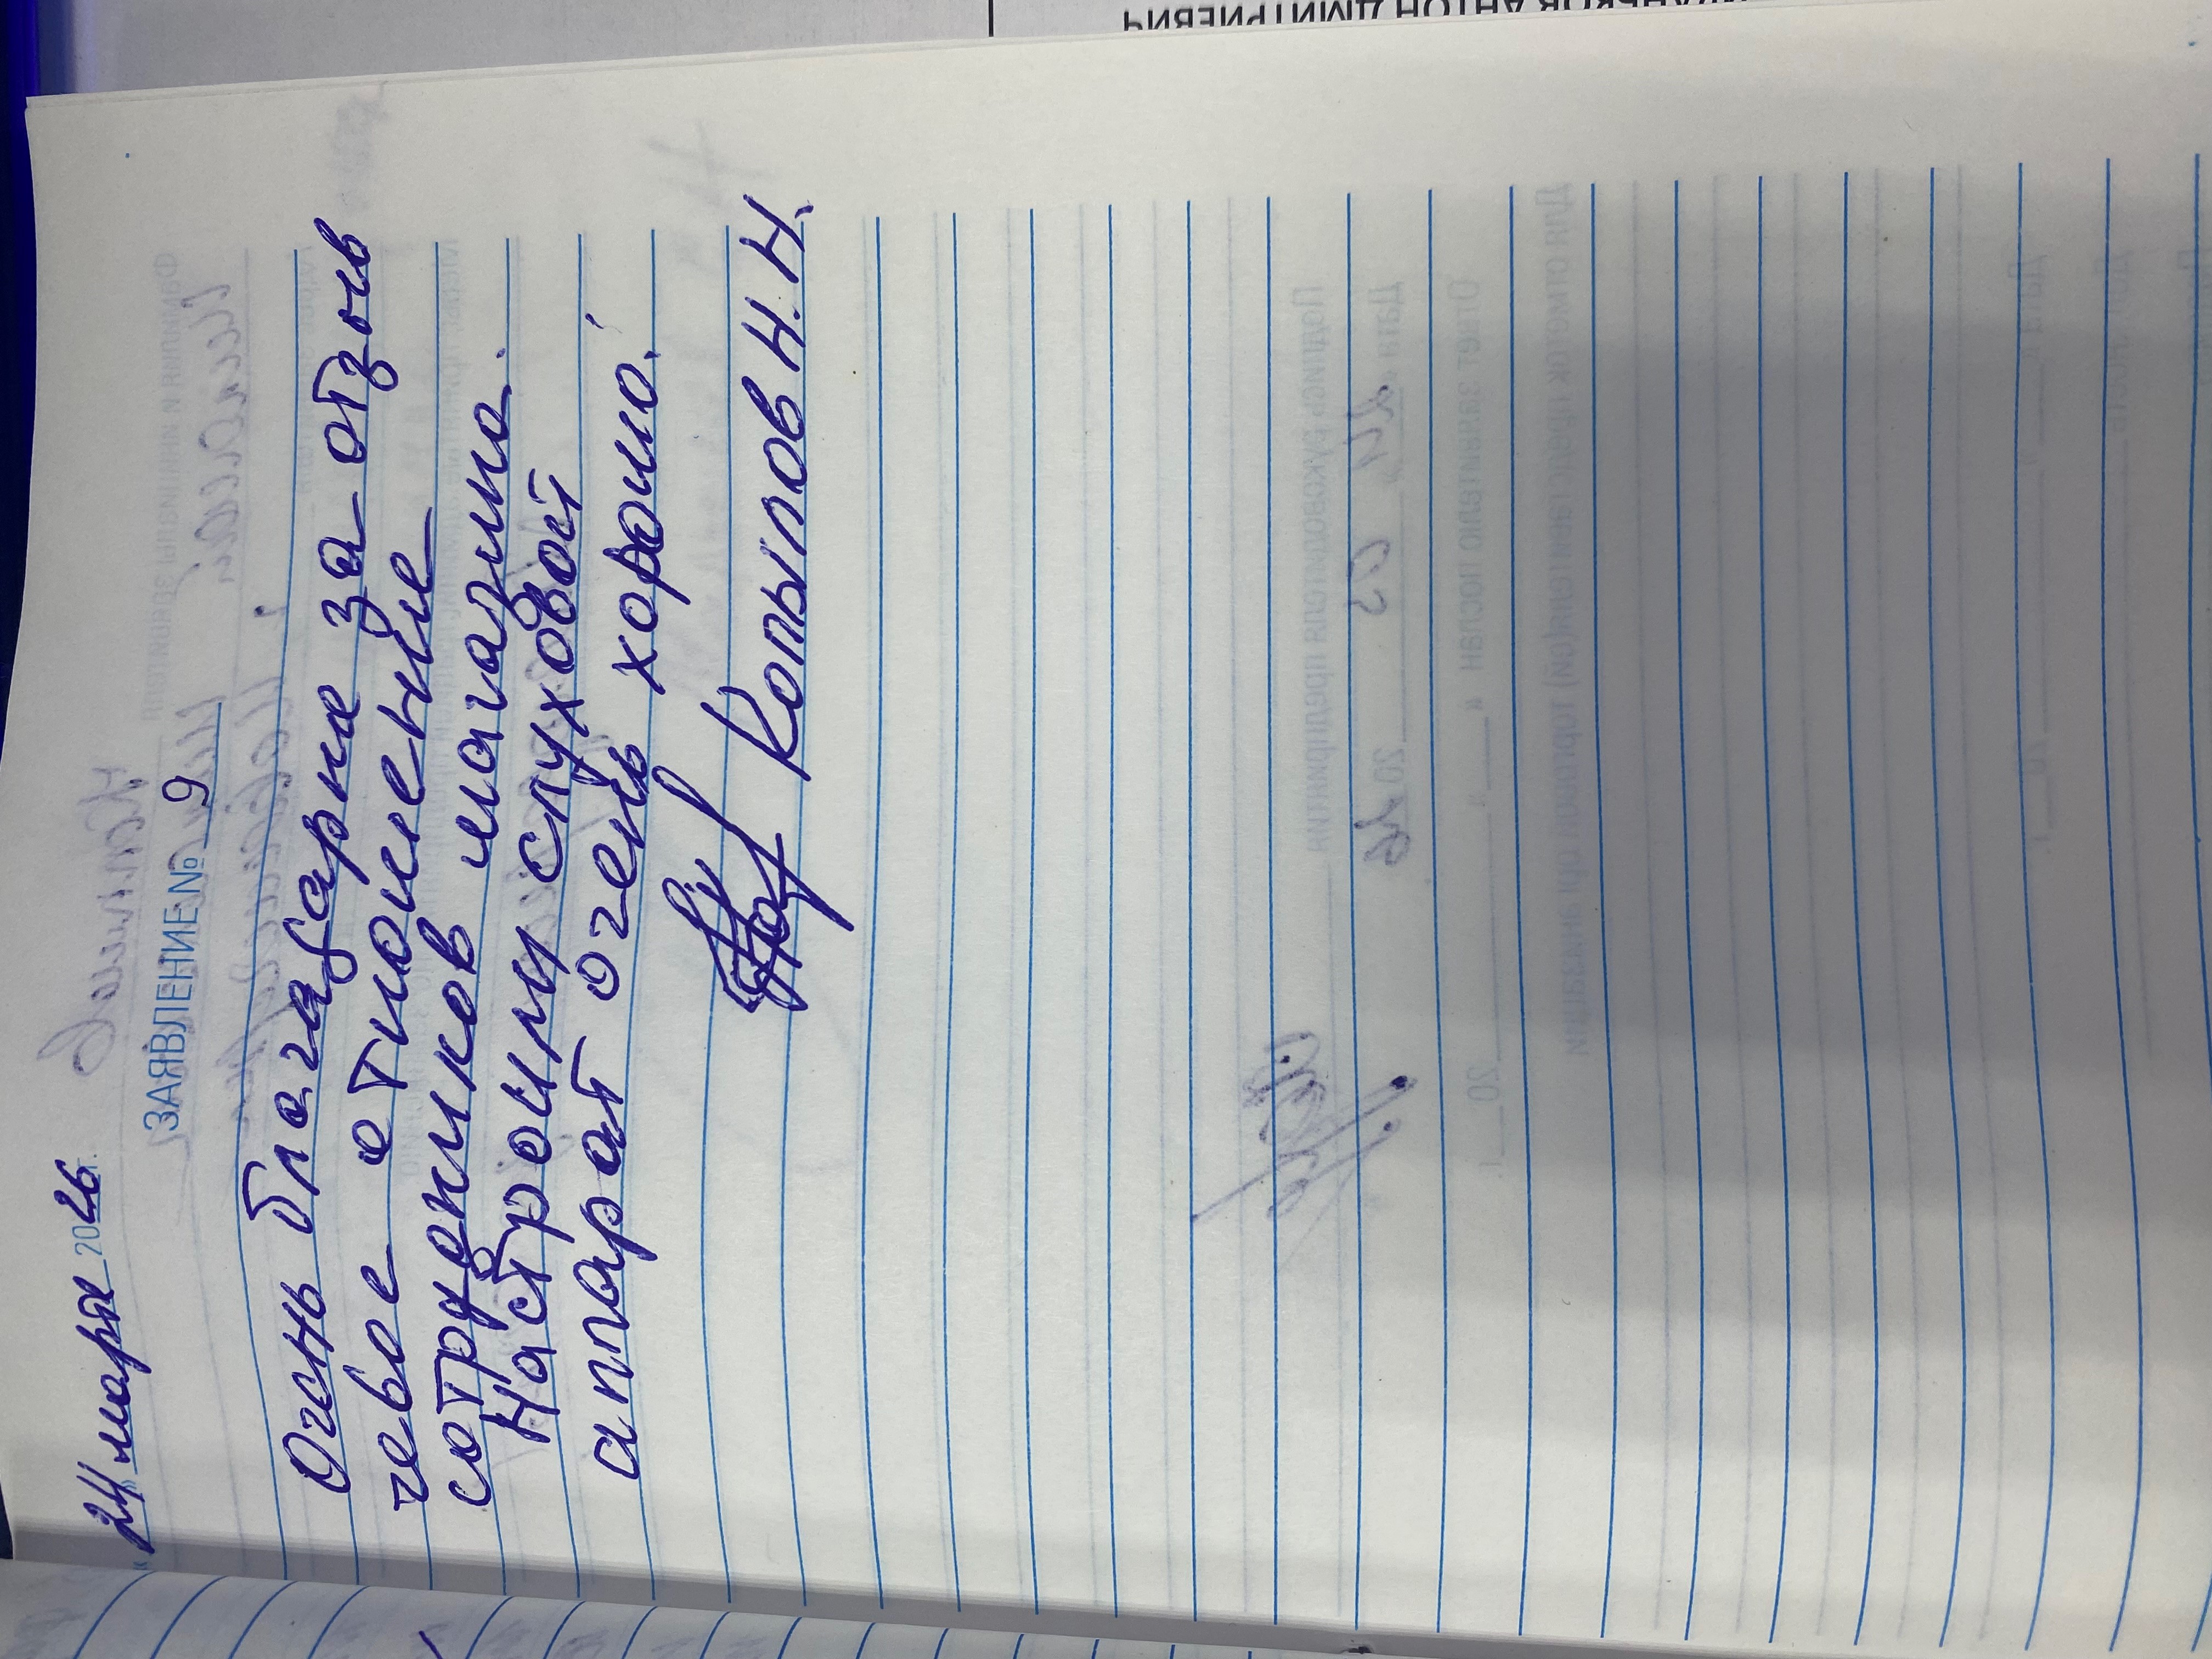 "24" марта 2026г.
ЗАЯВЛЕНИЕ № 9
Очень благадарне за отзыв
чевое отношение
сотрудников магазина.
Настроили слуховой
аппарат очень хорошо.
Копылов Н.Н.
АНТОН ДМИТРИЕВИЧ